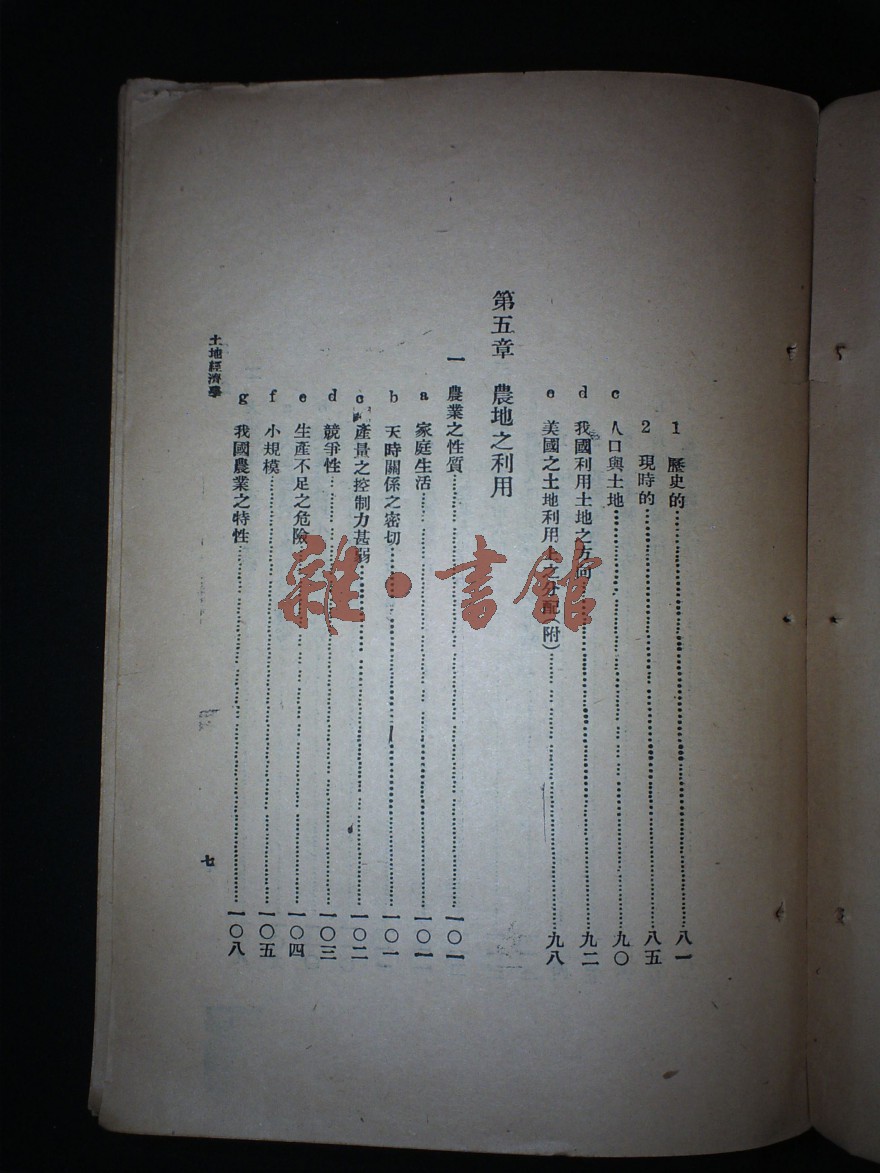 1 歷史的……八一
2 現時的……八五
c 人口與土地……九〇
d 我國利用土地之方向……九二
e 美國之土地利用上之分配(附)……九八
第五章 農地之利用
一 農業之性質……一〇一
a 家庭生活……一〇一
b 天時關係之密切……一〇一
c 產量之控制力甚弱……一〇二
d 競爭性……一〇三
e 生產不足之危險……一〇四
f 小規模……一〇五
g 我國農業之特性……一〇八
土地經濟學
七
雜·書館